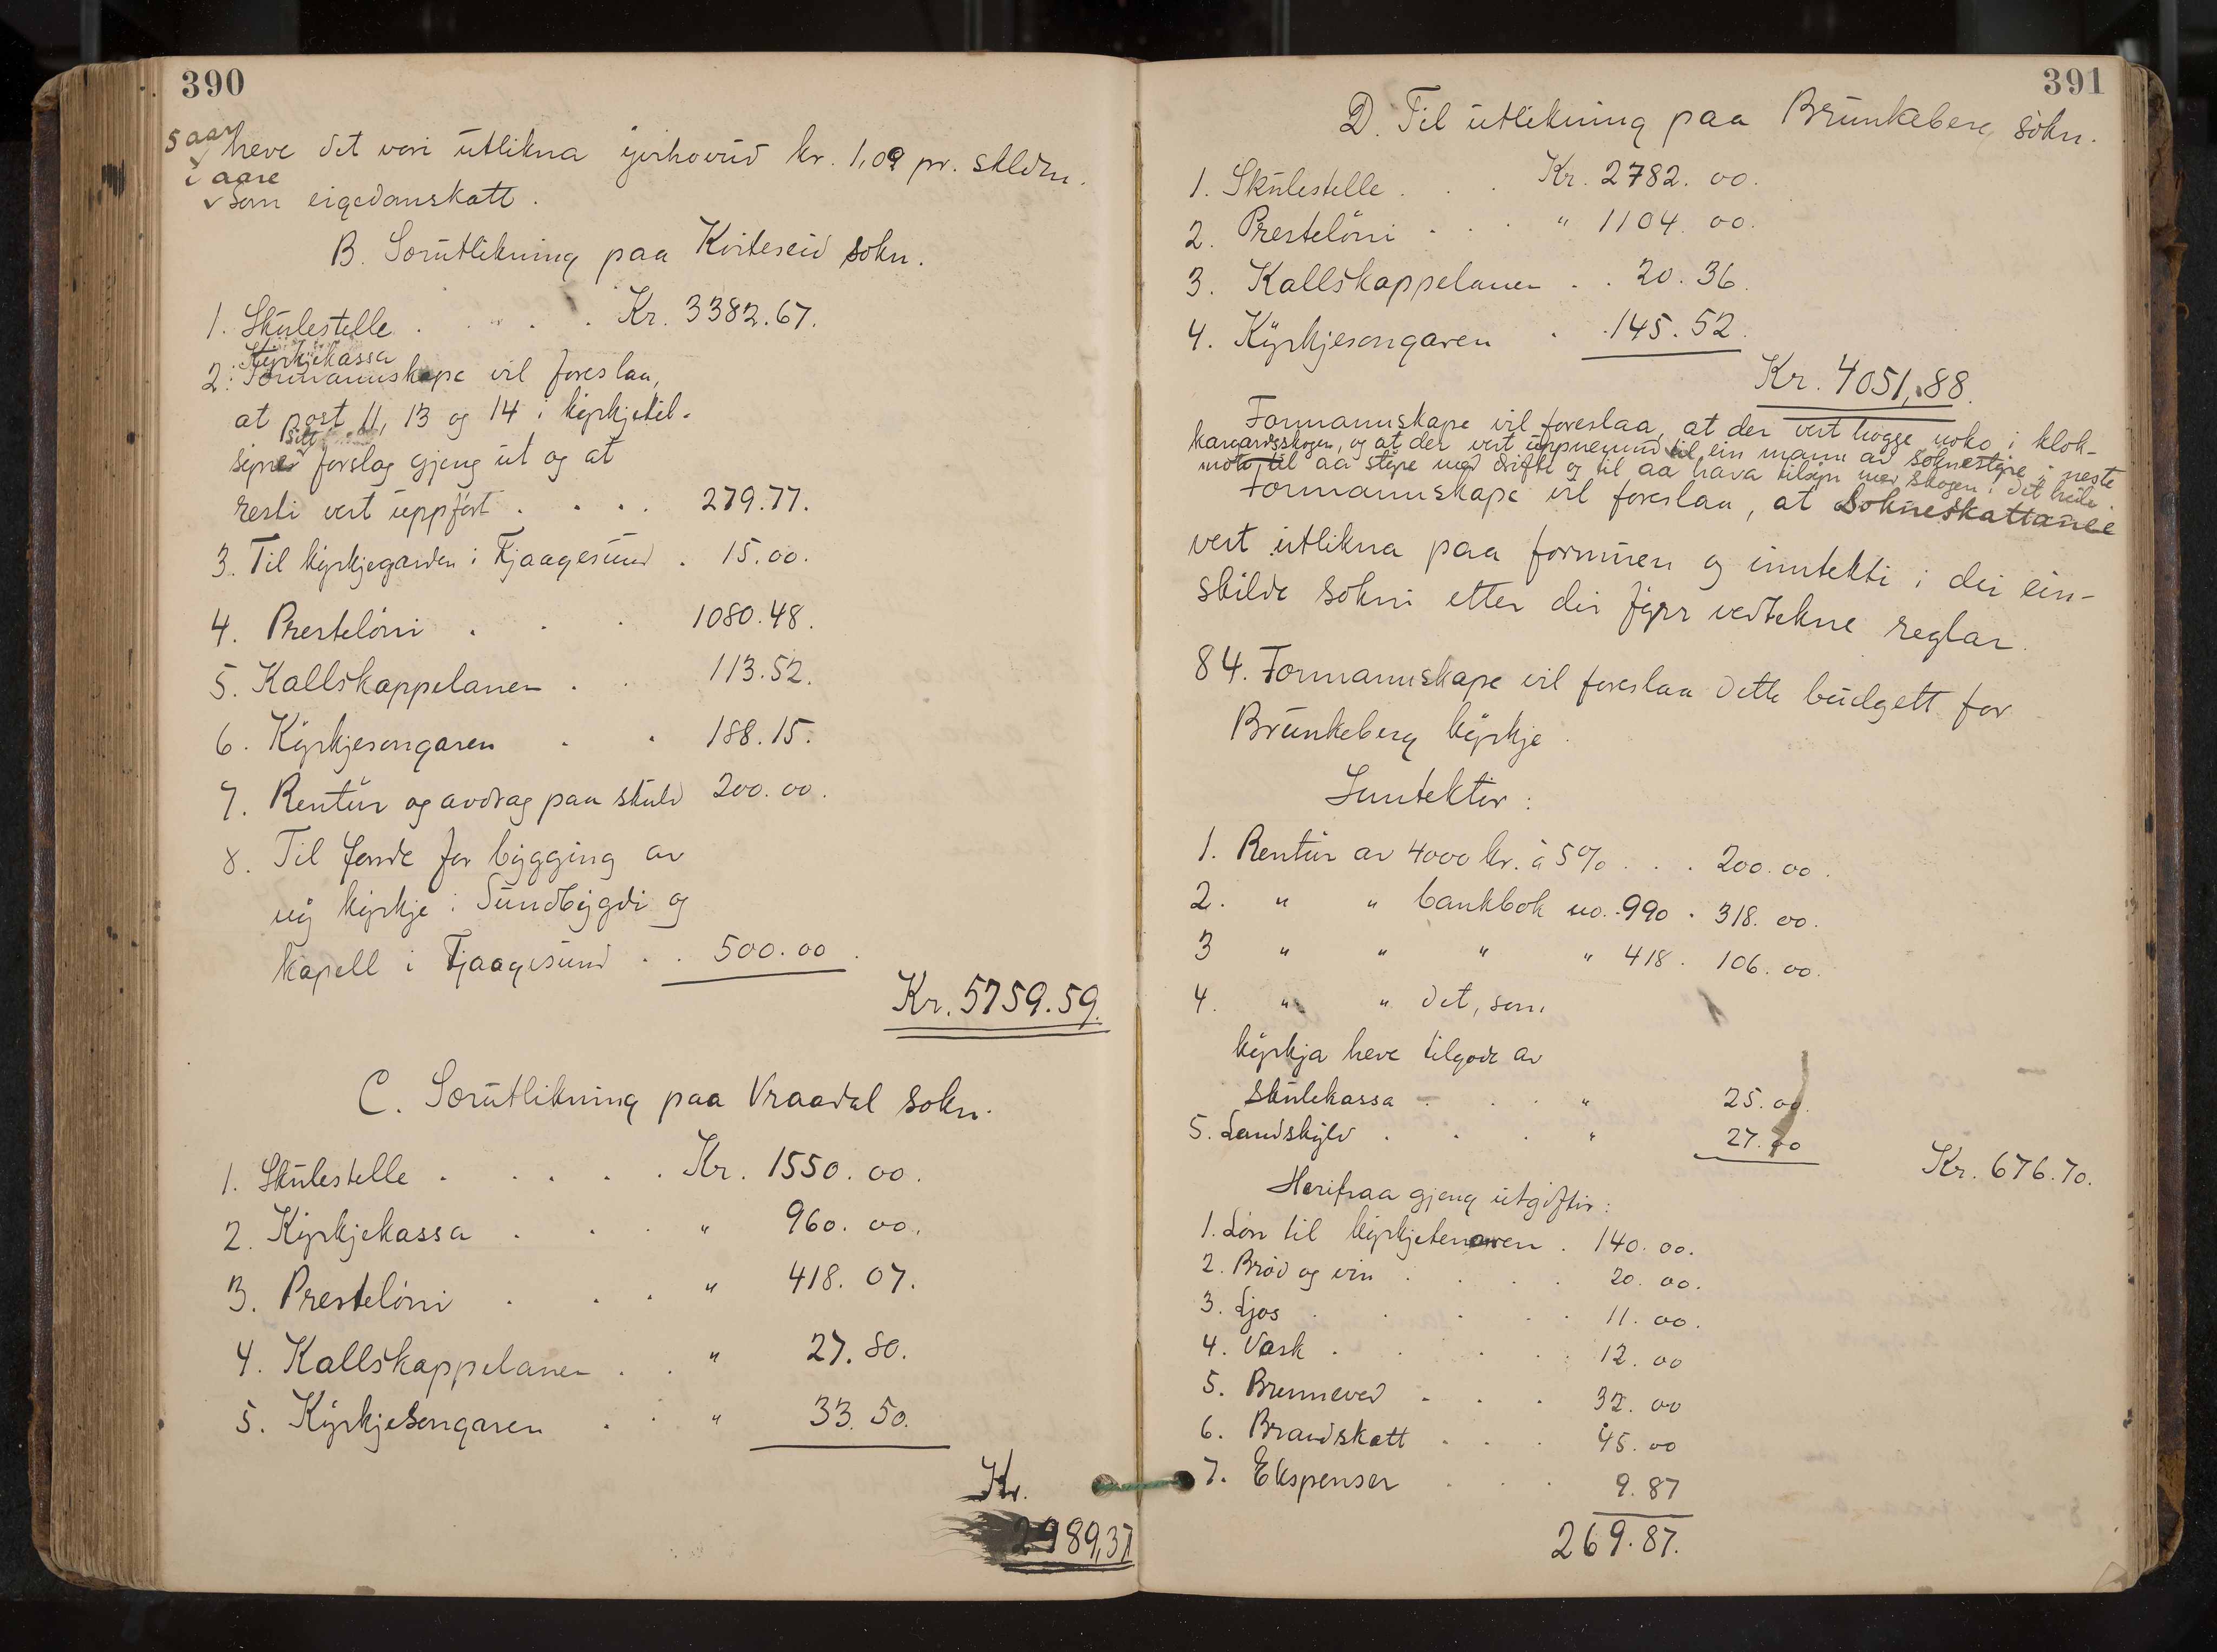 390
5 aar
heve det vori ūtlikna ivirhovūd kr. 1,09 pr. skldm.
i aare
som eigedomskatt.
B. Særūtlikning paa Kviteseid sokn.
1. Skūlestelle . . . . . Kr. 3382.67.
Kyrkjekassa
2. Formannskape vil foreslaa,
at post 11, 13 og 14 i kyrkjetil-
sitt
synes forslag gjeng ūt og at
resti vert ūppført . . . . 279.77.
3. Til kyrkjegarden i Fjaagesūnd . 15.00.
4. Presteløni . . . 1080.48.
5. Kallskappelanen . . 113.52.
6. Kyrkjesongaren . . 188.15.
7. Rentūr og avdrag paa skūld 200.00.
8. Til fonde for bygging av
ny kyrkje i Sūndbygdi og
kapell i Fjaagesūnd . . 500.00.
Kr. 5759.59.
C. Særūtlikning paa Vraadal sokn.
1. Skūlestelle . . . . . Kr. 1550.00.
2. Kyrkjekassa . . . " 960.00.
3. Presteløni . . . " 418.07.
4. Kallskappelanen . . " 27.80.
5. Kyrkjesongaren . . " 33.50.
Kr.
2989,37
391
D. Til ūtlikning paa Brūnkeberg sokn.
1. Skūlestelle . . . Kr. 2782.00.
2. Presteløni . . . " 1104.00.
3. Kallskappelanen . . 20.36.
4. Kyrkjesongaren . . 145.52.
Kr. 4051,88.
Formannskape vil foreslaa, at der vert hogge noko i klok-
kargardsskogen, og at der vert ūppnemnd til ein mann av soknestyre i neste
møte, til aa styre med drifti og til aa hava tilsyn med skogen i det heile.
Formannskape vil foreslaa, at Sokneskattane
vert ūtlikna paa formūen og inntekti i dei ein-
skilde sokni etter dei fyrr vedtekne reglar.
84. Formannskape vil foreslaa dette būdgett for
Brūnkeberg kyrkje.
Inntektir:
1. Rentūr av 4000 kr. à 5% . . . 200.00.
2. " " bankbok no. 990 . 318.00.
3 " " " " 418. 106.00.
4. " " det, som
kyrkja heve tilgode av
Skūlekassa . . . " 25.00.
5. Landskyld . . . " 27.70
Kr. 676.70.
Herifraa gjeng ūtgiftir:
1. Løn til kyrkjetenaren . 140.00.
2. Brød og vin . . . . 20.00.
3. Ljos . . . . . 11.00.
4. Vask . . . . . 12.00
5. Brenneved . . . 32.00
6. Brandskatt . . . 45.00
7. Ekspenser . . . 9.87
269.87.